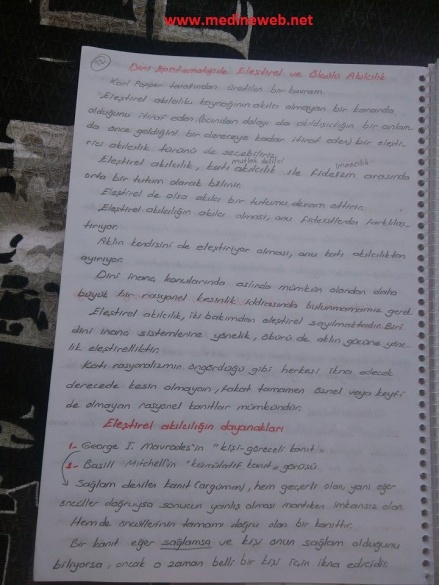 www.medineweb.net
Dini Epistemolojide Eleştirel ve Ölçülü Akılcılık
Karl Popper tarafından üretilen bir kavram.
"Eleştirel akılcılık kaynağının akılcı olmayan bir kararda
olduğunu itiraf eden (bundan dolayı da akıldışıcılığın bir anlam-
da önce geldiğini bir dereceye kadar itiraf eden) bir eleşti-
rici akılcılık türünü de seçebiliriz.
mutlak delilci
inancılık
Eleştirel akılcılık, katı akılcılık ile fideizm arasında
orta bir tutum olarak bilinir.
Eleştirel de olsa akılcı bir tutumu devam ettirir.
Eleştirel akılcılığın akılcı olması, onu fideistlerden farklılaş-
tırıyor.
Aklın kendisini de eleştiriyor olması, onu katı akılcılıktan
ayırıyor.
Dini inanç konularında aslında mümkün olandan daha
büyük bir rasyonel kesinlik iddiasında bulunmamamız gerek
Eleştirel akılcılık, iki bakımdan eleştirel sayılmaktadır. Biri
dini inanç sistemlerine yönelik, öbürü de aklın gücüne yöne-
lik eleştirelliktir.
Katı rasyonalizmin öngördüğü gibi herkesi ikna edecek
derecede kesin olmayan, fakat tamamen öznel veya keyfi
de olmayan rasyonel kanıtlar mümkündür.
Eleştirel akılcılığın dayanakları
1- George I. Mavrodes'in "kişi-göreceli kanıt"
2- Basill Mitchell'in "kümülatif kanıt" görüşü.
Sağlam deliller kanıt (argüman), hem geçerli olan, yani eğer
öncüller doğruysa sonucun yanlış olması mantıken imkansız olan
Hem de öncüllerinin tamamı doğru olan bir kanıttır.
Bir kanıt eğer sağlamsa ve kişi onun sağlam olduğunu
biliyorsa, ancak o zaman belli bir kişi için ikna edicidir.